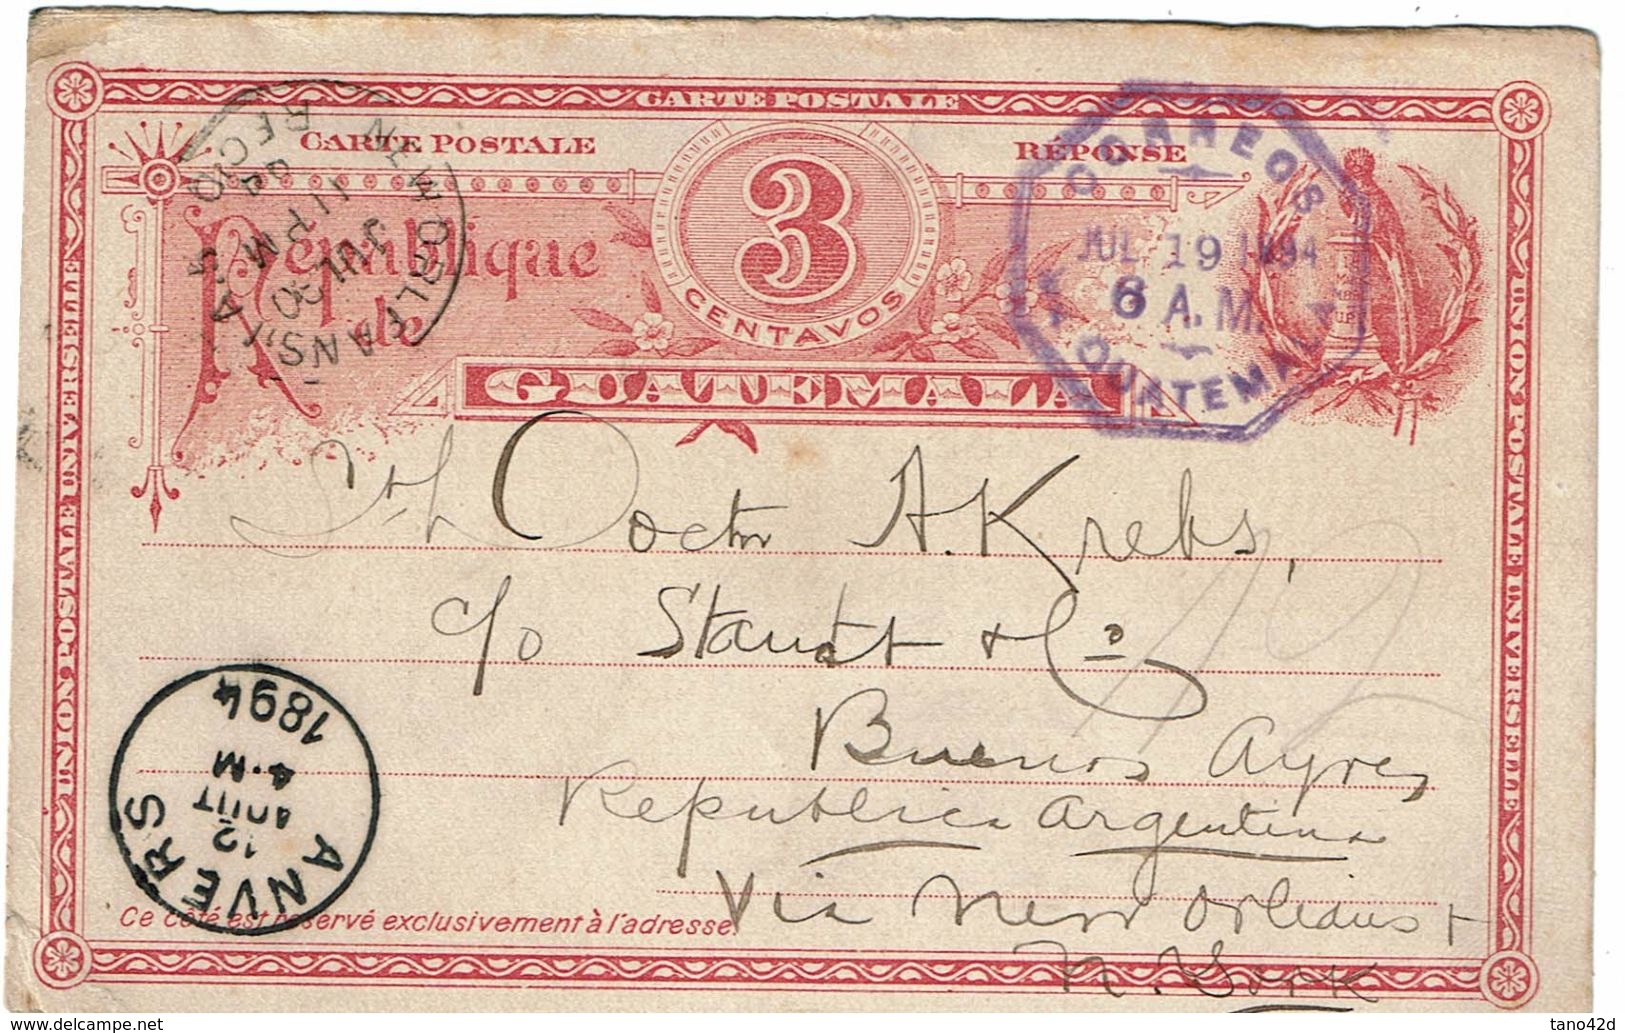 CARTE POSTALE
CARTE POSTALE
RÉPONSE
3
CENTAVOS
République
de
GUATEMALA
UNION POSTALE UNIVERSELLE
UNION POSTALE UNIVERSELLE
CORREOS
JUL 19 1894
6 A.M.
GUATEMALA
NEW ORLEANS, LA.
JUL 30
11 PM
94
REC'D
Doctor A. Krebs,
c/o Staudt & Co
Buenos Ayres
Republica Argentina
Via New Orleans +
N. York
ANVERS
12
AOUT
4·M
1894
Ce côté est réservé exclusivement à l'adresse.
CARTE POSTALE
delcampe.net
tano42d